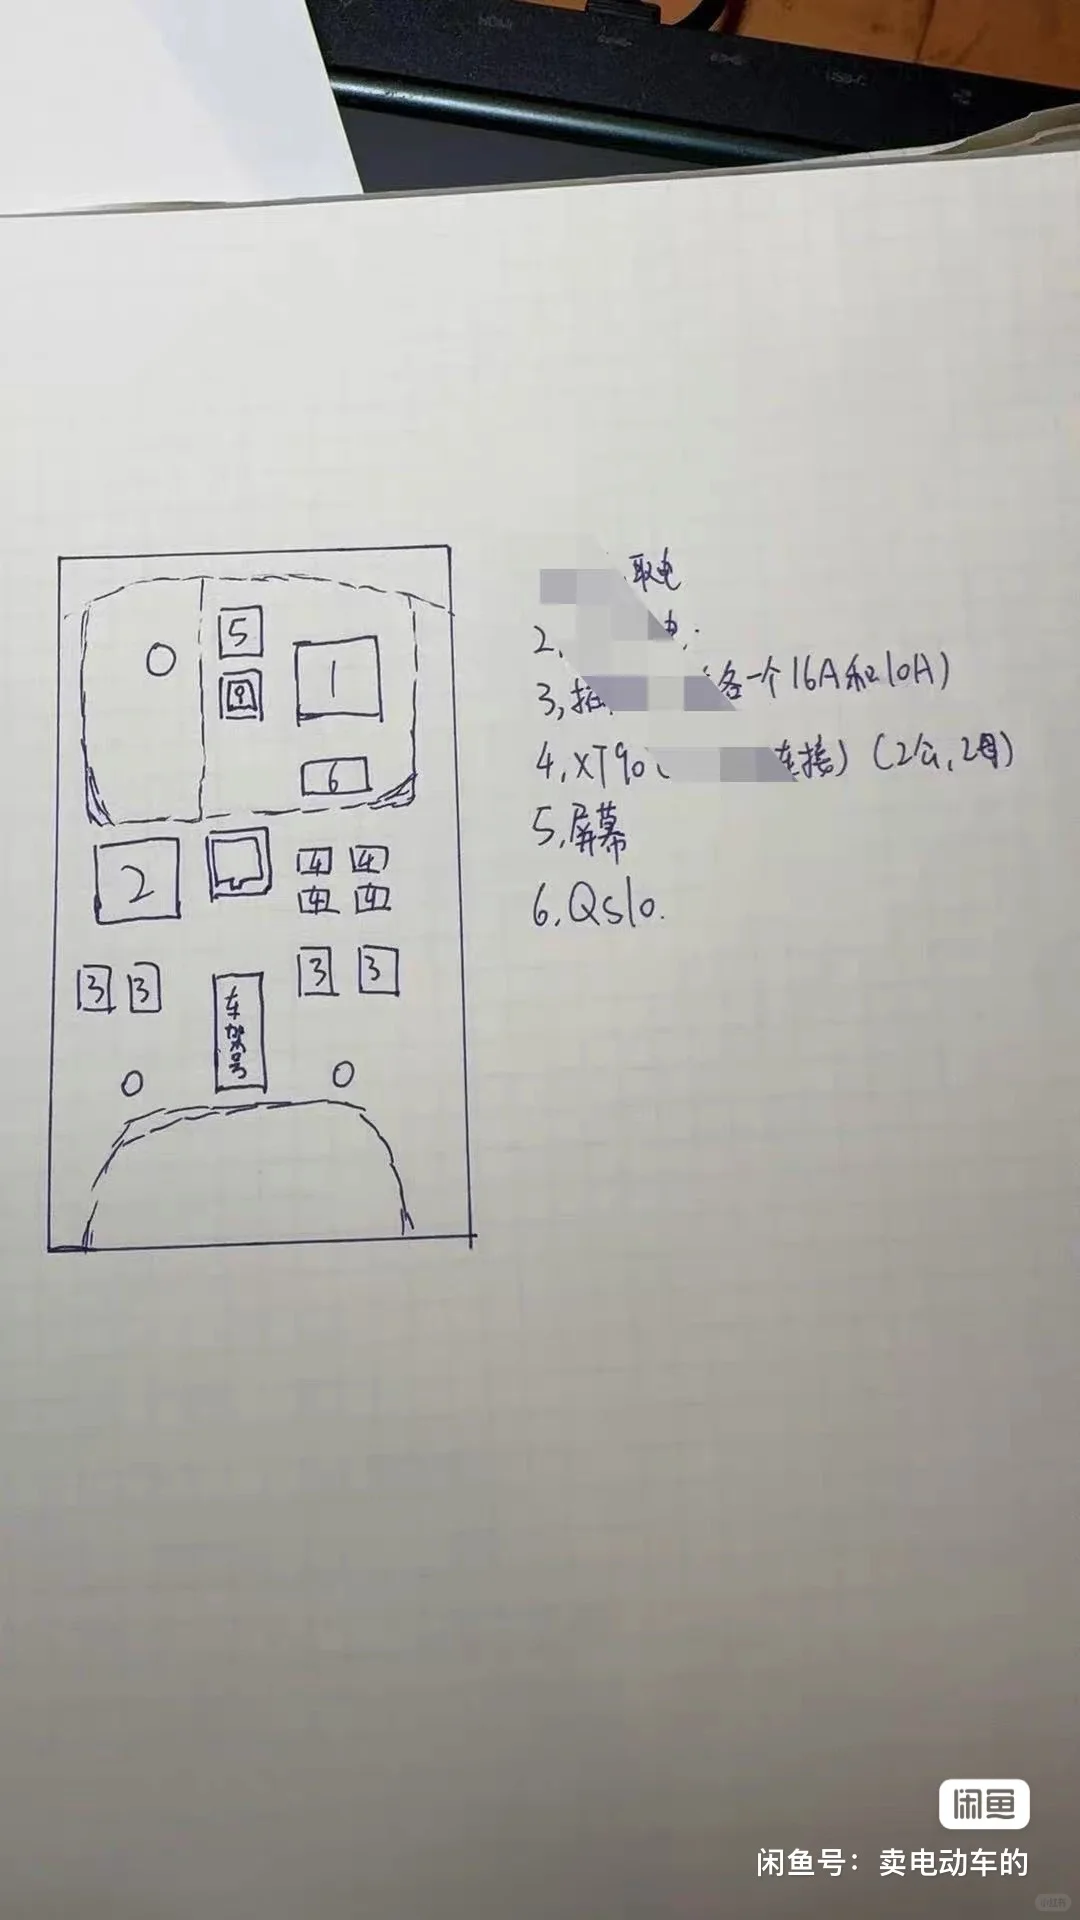 取电
2.
3,插 各一个16A和10A)
4.XT90 连接)(2公,2母)
5.屏幕
6.QS10.
5
1
6
2
4 4
4 4
3 3
3 3
车架号
闲鱼
闲鱼号：卖电动车的
小红书